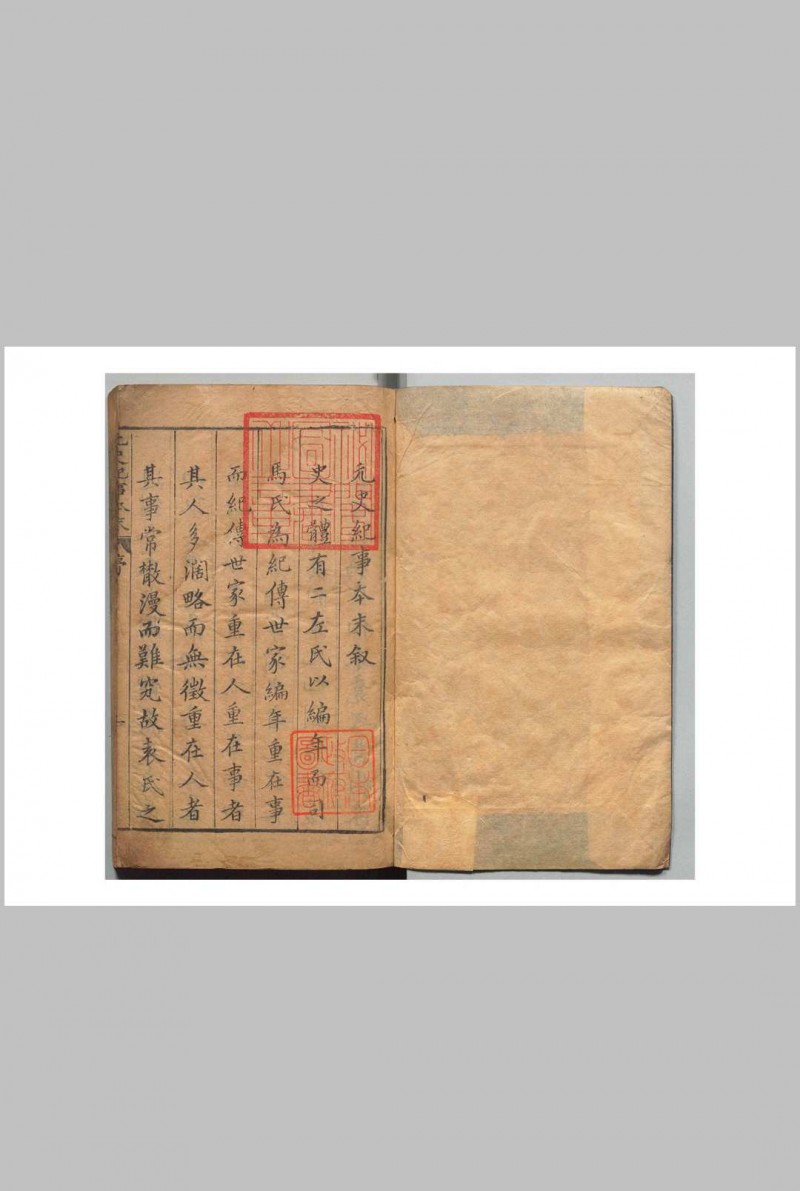 元史紀事本末叙
史之體有二左氏以編年而司
馬氏為紀傳世家編年重在事
而紀傳世家重在人重在事者
其人多濶略而無徵重在人者
其事常散漫而難究故袁氏之
元史紀事本末 序